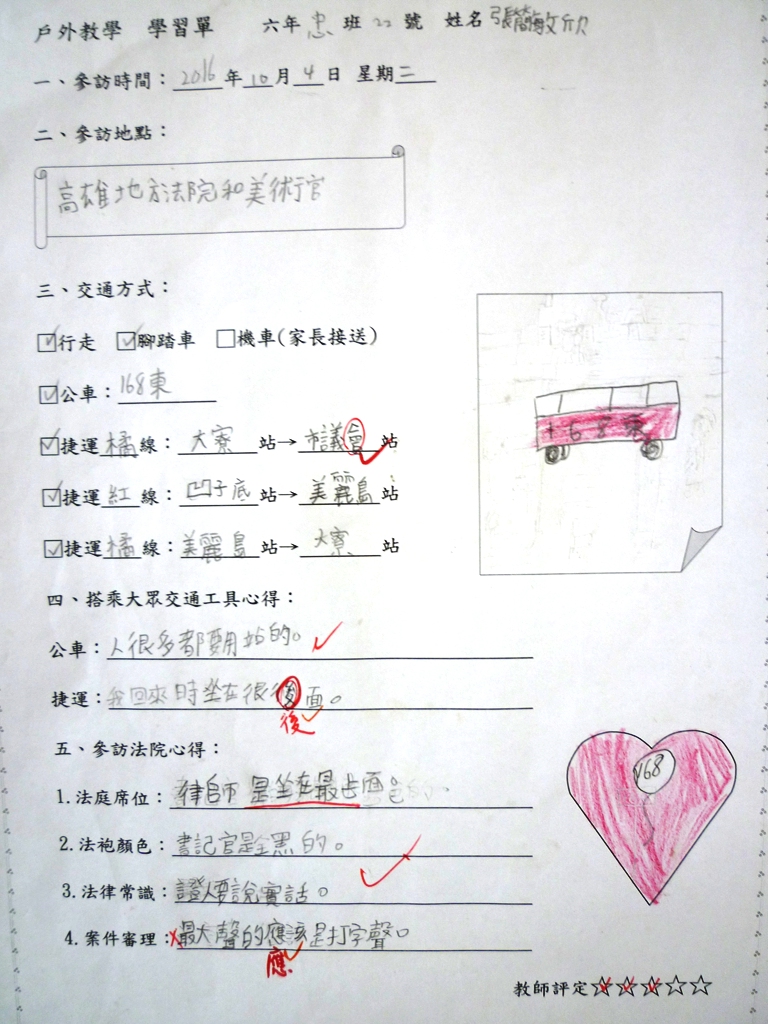 戶外教學 學習單 六年 忠 班 22 號 姓名 張簡敏欣
一、參訪時間：2016年10月4日 星期二
二、參訪地點：
高雄地方法院和美術官
三、交通方式：
☑行走 ☑腳踏車 □機車(家長接送)
☑公車：168東
☑捷運橘線：大寮站→市議會站
☑捷運紅線：凹子底站→美麗島站
☑捷運橘線：美麗島站→大寮站
168東
四、搭乘大眾交通工具心得：
公車：人很多都要用站的。
捷運：我回來時坐在很後面。
後
五、參訪法院心得：
1.法庭席位：律師是坐在最右面
2.法袍顏色：書記官是全黑的。
3.法律常識：證人要說實話。
4.案件審理：最大聲的應該是打字聲。
應
168
教師評定☆☆☆☆☆